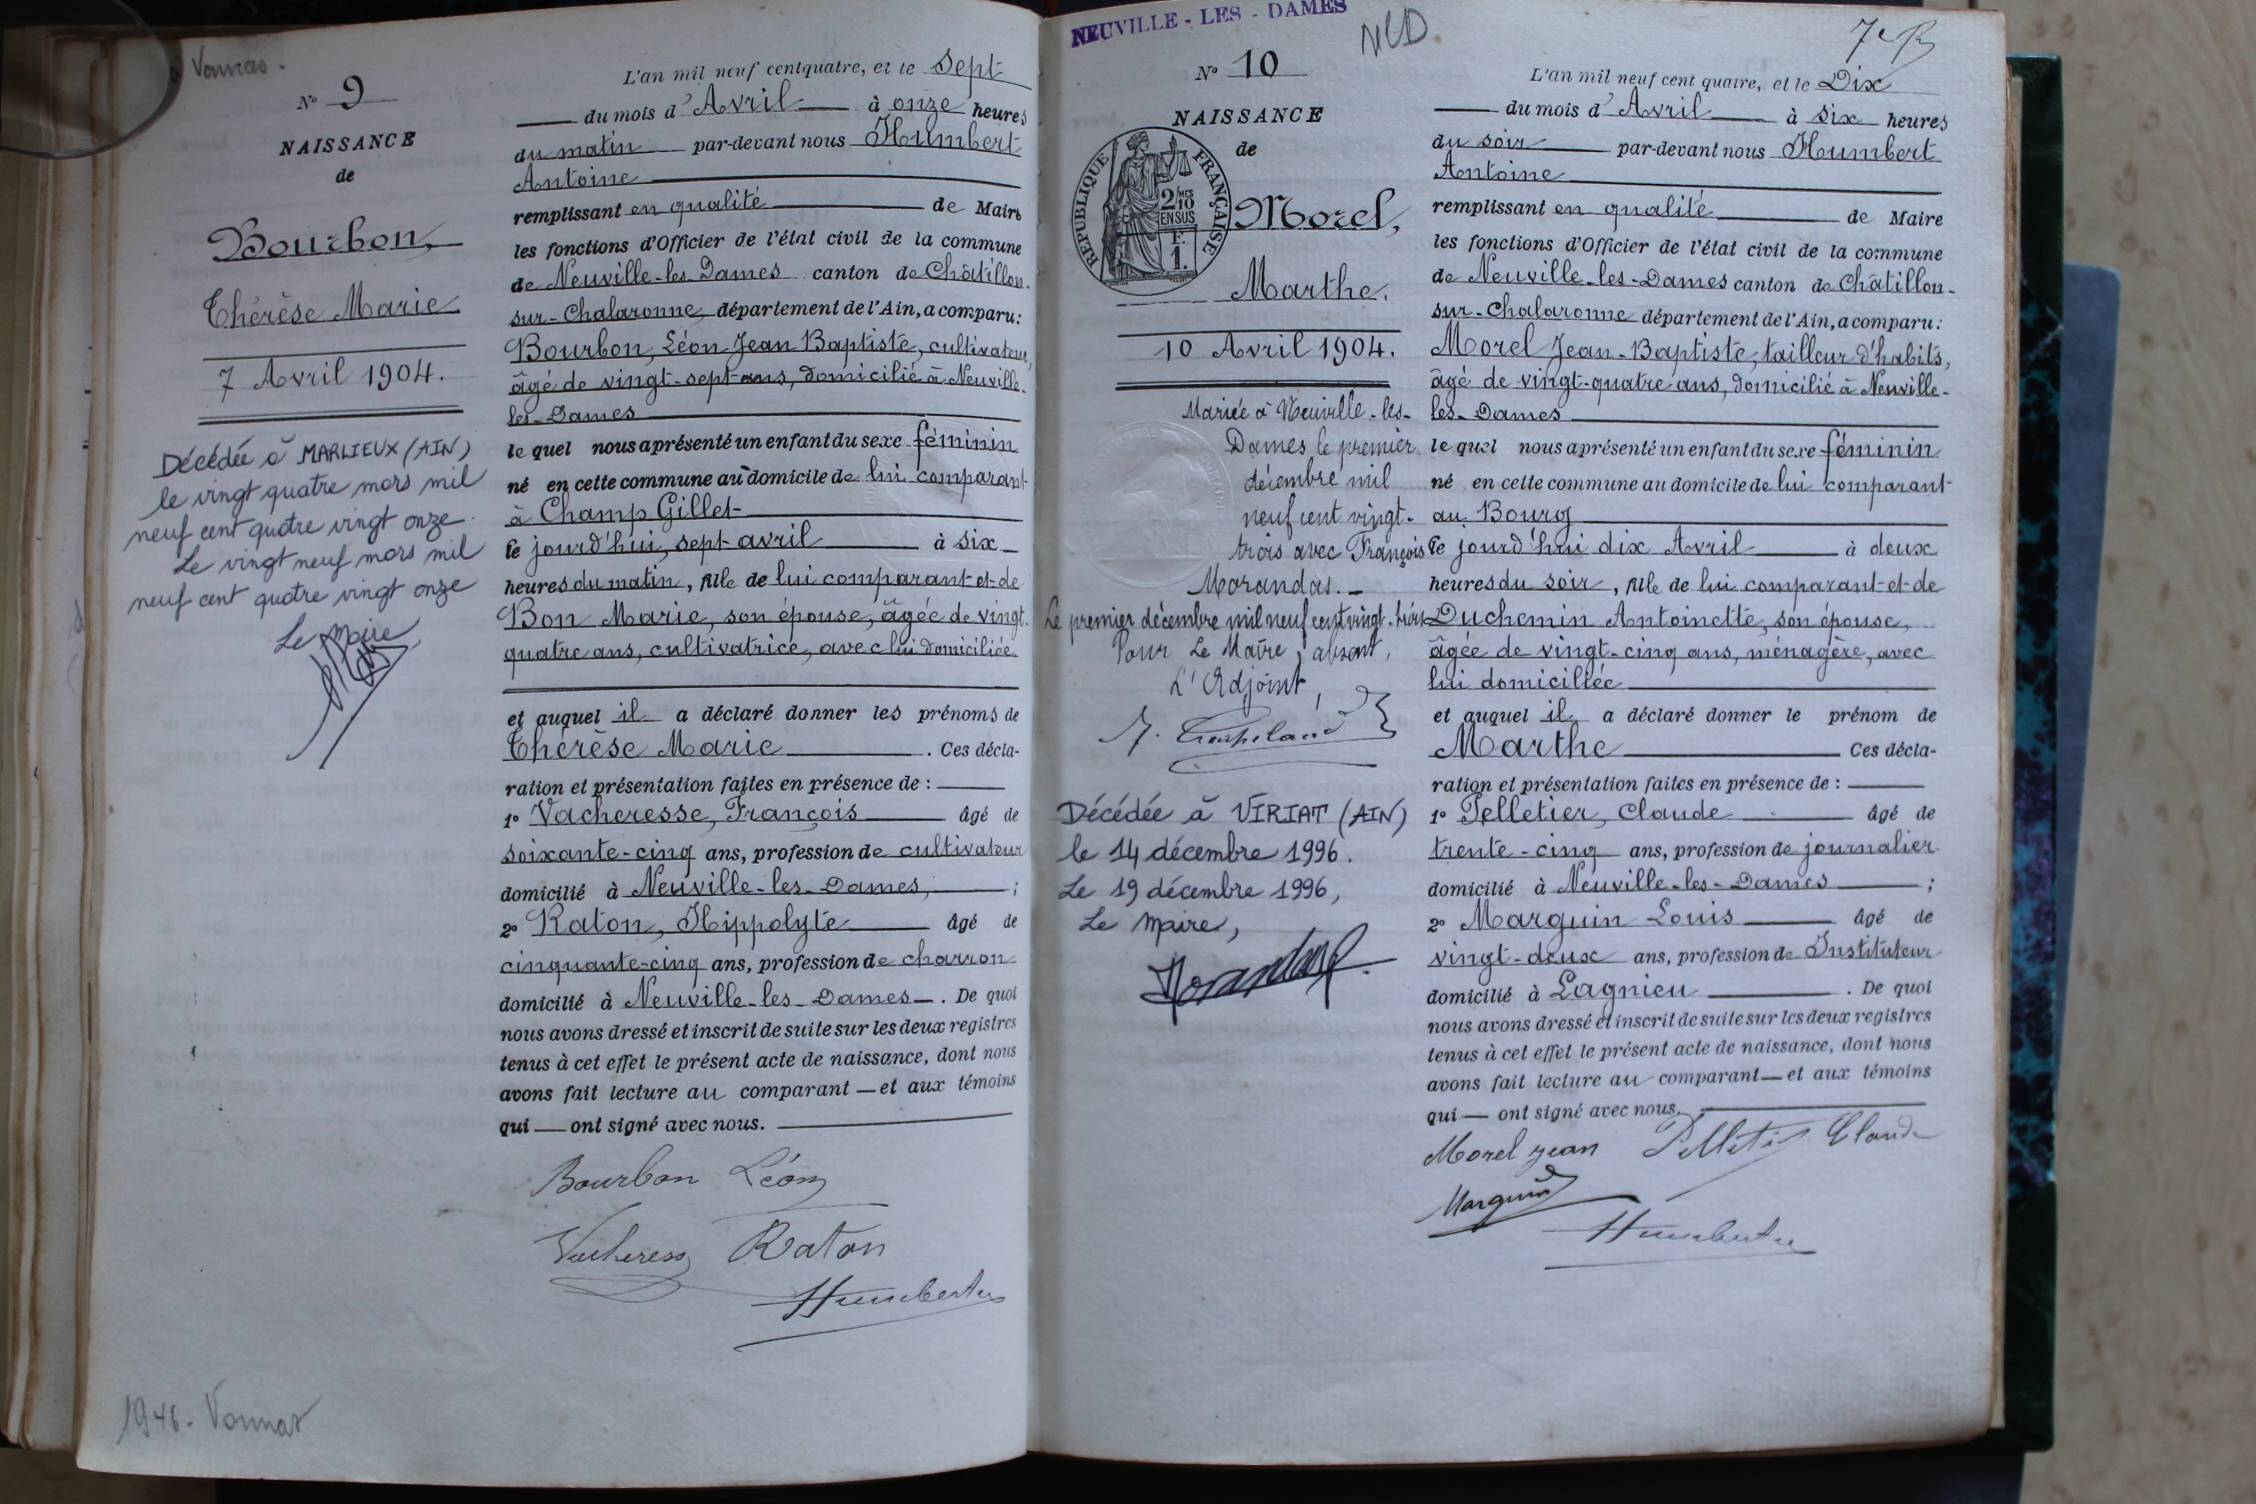 à Vonnas.
N° 9
NAISSANCE
de
Bourbon,
Thérèse Marie
7 Avril 1904.
Décédée à MARLIEUX (AIN)
le vingt quatre mars mil
neuf cent quatre vingt onze.
Le vingt neuf mars mil
neuf cent quatre vingt onze
Le Maire
1946 - Vonnas
L'an mil neuf cent quatre, et le Sept
du mois d'Avril à onze heures
du matin par-devant nous Humbert
Antoine
remplissant en qualité de Maire
les fonctions d'Officier de l'état civil de la commune
de Neuville-les-Dames canton de Châtillon-
sur-Chalaronne, département de l'Ain, a comparu:
Bourbon, Léon Jean Baptiste, cultivateur,
âgé de vingt-sept ans, domicilié à Neuville-
les-Dames
le quel nous a présenté un enfant du sexe féminin
né en cette commune au domicile de lui comparant
à Champ Gillet
le jourd'hui, sept avril à six
heures du matin, fille de lui comparant et de
Bon Marie, son épouse, âgée de vingt-
quatre ans, cultivatrice, avec lui domiciliée
et auquel il a déclaré donner les prénoms de
Thérèse Marie. Ces décla-
ration et présentation faites en présence de :
1° Vacheresse, François âgé de
soixante-cinq ans, profession de cultivateur
domicilié à Neuville-les-Dames, ;
2° Raton, Hippolyte âgé de
cinquante-cinq ans, profession de charron
domicilié à Neuville-les-Dames. De quoi
nous avons dressé et inscrit de suite sur les deux registres
tenus à cet effet le présent acte de naissance, dont nous
avons fait lecture au comparant et aux témoins
qui ont signé avec nous.
Bourbon Léon
Vacheresse Raton
Humbert
NEUVILLE-LES-DAMES
NLD.
N° 10
NAISSANCE
de
REPUBLIQUE FRANÇAISE
2/10 MES
EN SUS
F.
1.
Morel,
Marthe.
10 Avril 1904.
Mariée à Neuville-les-
Dames le premier
décembre mil
neuf cent vingt-
trois avec François
Morandas.
Le premier décembre mil neuf cent vingt-trois
Pour Le Maire, absent,
L'Adjoint,
Décédée à VIRIAT (AIN)
le 14 décembre 1996.
Le 19 décembre 1996,
Le Maire,
Morandas
L'an mil neuf cent quatre, et le Dix
du mois d'Avril à six heures
du soir par-devant nous Humbert
Antoine
remplissant en qualité de Maire
les fonctions d'Officier de l'état civil de la commune
de Neuville-les-Dames canton de Châtillon-
sur-Chalaronne département de l'Ain, a comparu:
Morel Jean-Baptiste, tailleur d'habits,
âgé de vingt-quatre ans, domicilié à Neuville-
les-Dames
le quel nous a présenté un enfant du sexe féminin
né en cette commune au domicile de lui comparant
au Bourg
le jourd'hui dix Avril à deux
heures du soir, fille de lui comparant et de
Duchemin Antoinette, son épouse,
âgée de vingt-cinq ans, ménagère, avec
lui domiciliée
et auquel il a déclaré donner le prénom de
Marthe Ces décla-
ration et présentation faites en présence de :
1° Pelletier, Claude âgé de
trente-cinq ans, profession de journalier
domicilié à Neuville-les-Dames ;
2° Marguin Louis âgé de
vingt-deux ans, profession de Instituteur
domicilié à Lagnieu. De quoi
nous avons dressé et inscrit de suite sur les deux registres
tenus à cet effet le présent acte de naissance, dont nous
avons fait lecture au comparant et aux témoins
qui ont signé avec nous.
Morel Jean Pelletier Claude
Marguin
Humbert